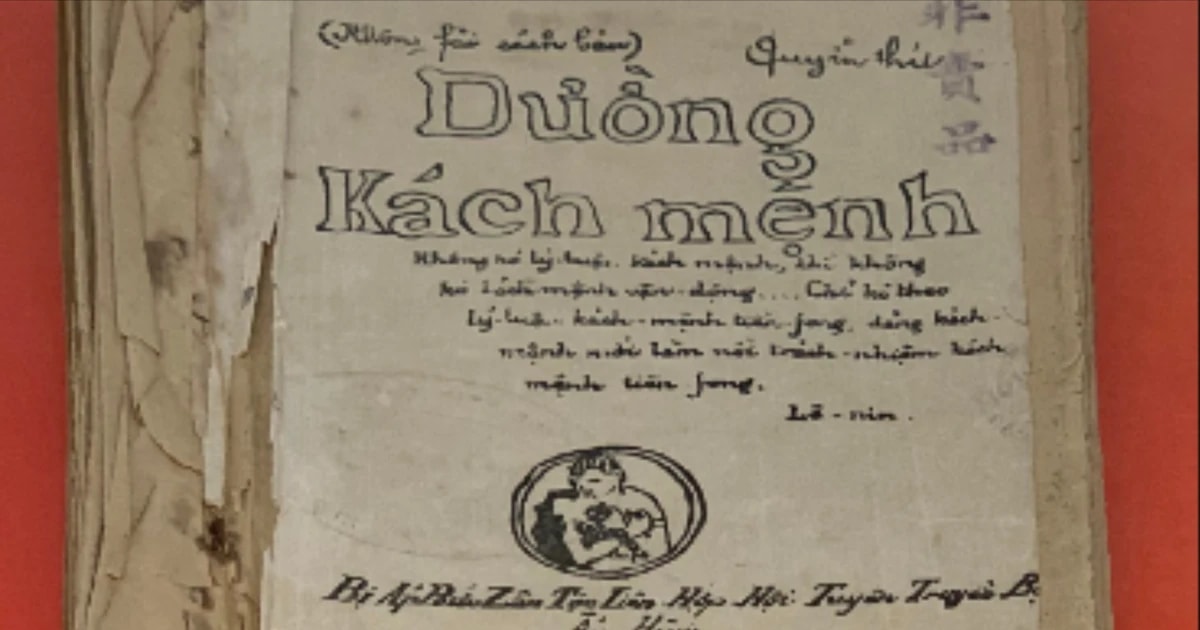 (Không fải sách bán)
Quyển thứ
非賣品
Đường
Kách mệnh
Không có lý-luận kách mệnh, thì không
có kách mệnh vận-động.... Chỉ có theo
lý-luận kách-mệnh tiên-fong, đảng kách
mệnh mới làm nổi trách-nhiệm kách
mệnh tiên fong.
Lê-nin.
Bị Áp Bức Zân Tộc Liên Hợp Hội Tuyên Truyền Bộ